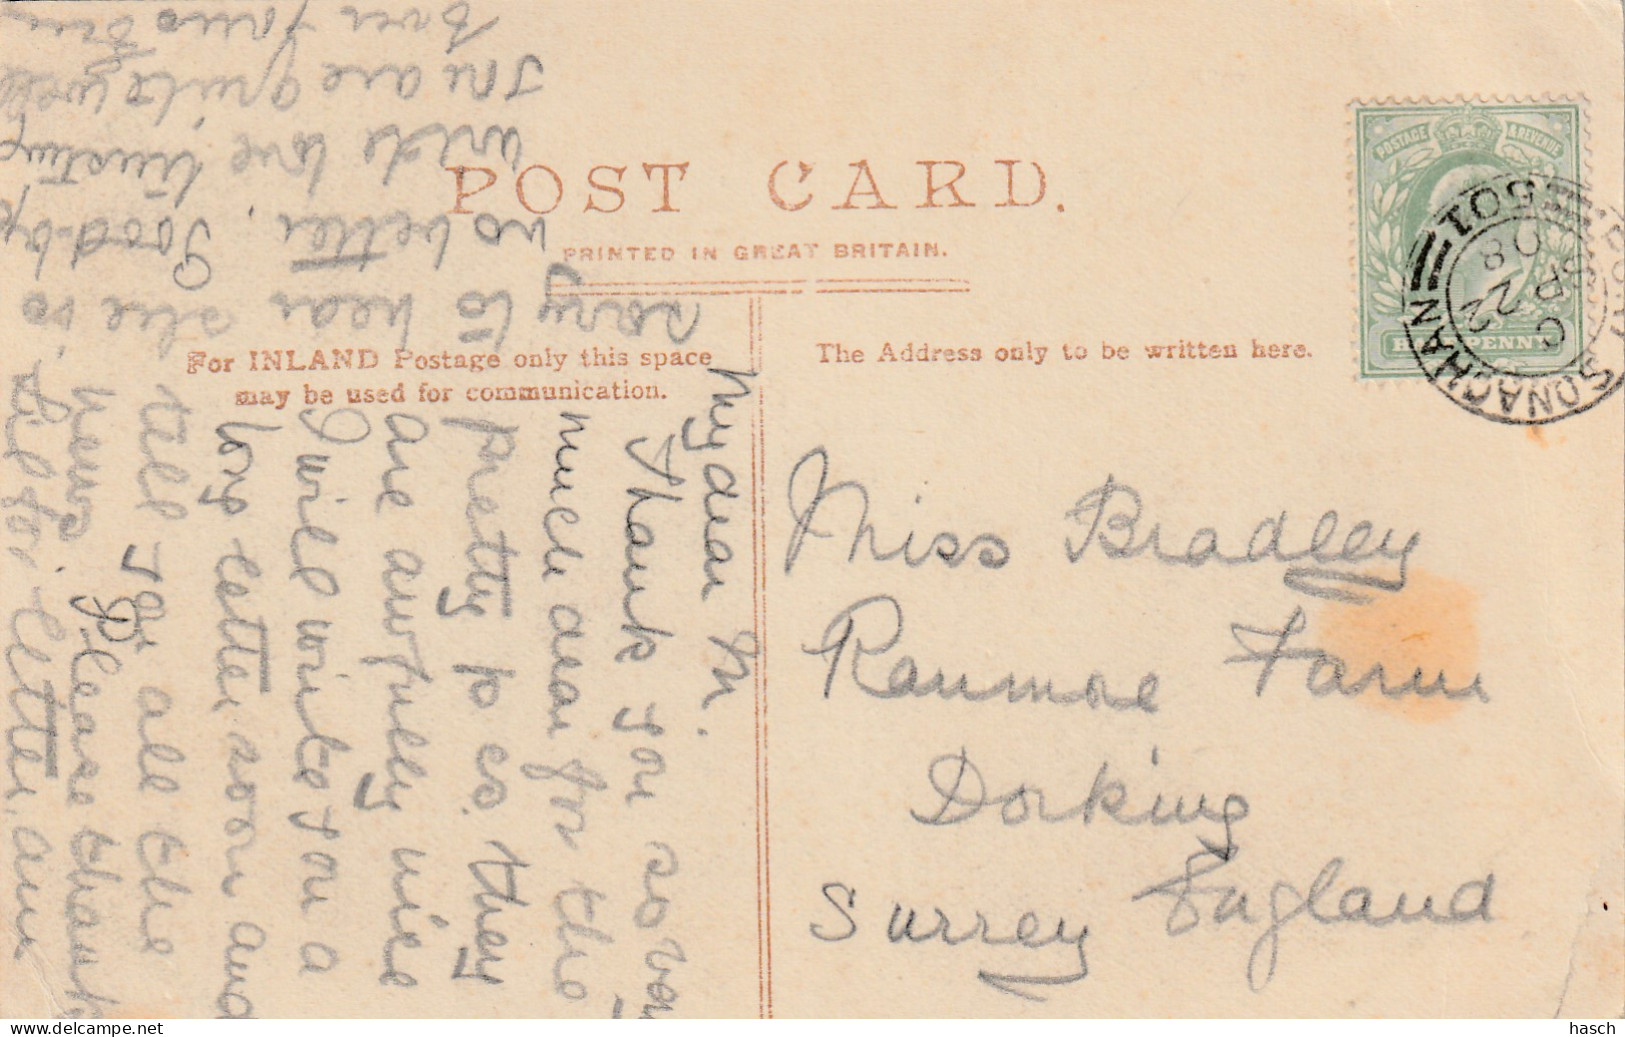 POST CARD.
PRINTED IN GREAT BRITAIN.
For INLAND Postage only this space
may be used for communication.
The Address only to be written here.
POSTAGE & REVENUE
HALFPENNY
SONACHAN
22
08
Miss Bradley
Ranmore Farm
Dorking
Surrey England
My dear M.
Thank you so very
much dear for the
pretty p cs. they
are awfully nice
I will write you a
long letter soon and
tell you all the
news. Please thank
for letter, am
sorry to hear she is
no better. Good-bye
with love trusting
are quite well
hasch